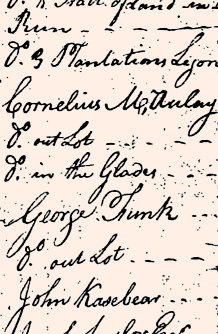 Do. & Tract of land in
Run - - -
Do. 3 Plantations Lyon
Cornelius McAulay
Do. out Lot - - - -
Do. in the Glades - - -
George Funk - - -
Do. out Lot - - - -
John Kasebear - - -